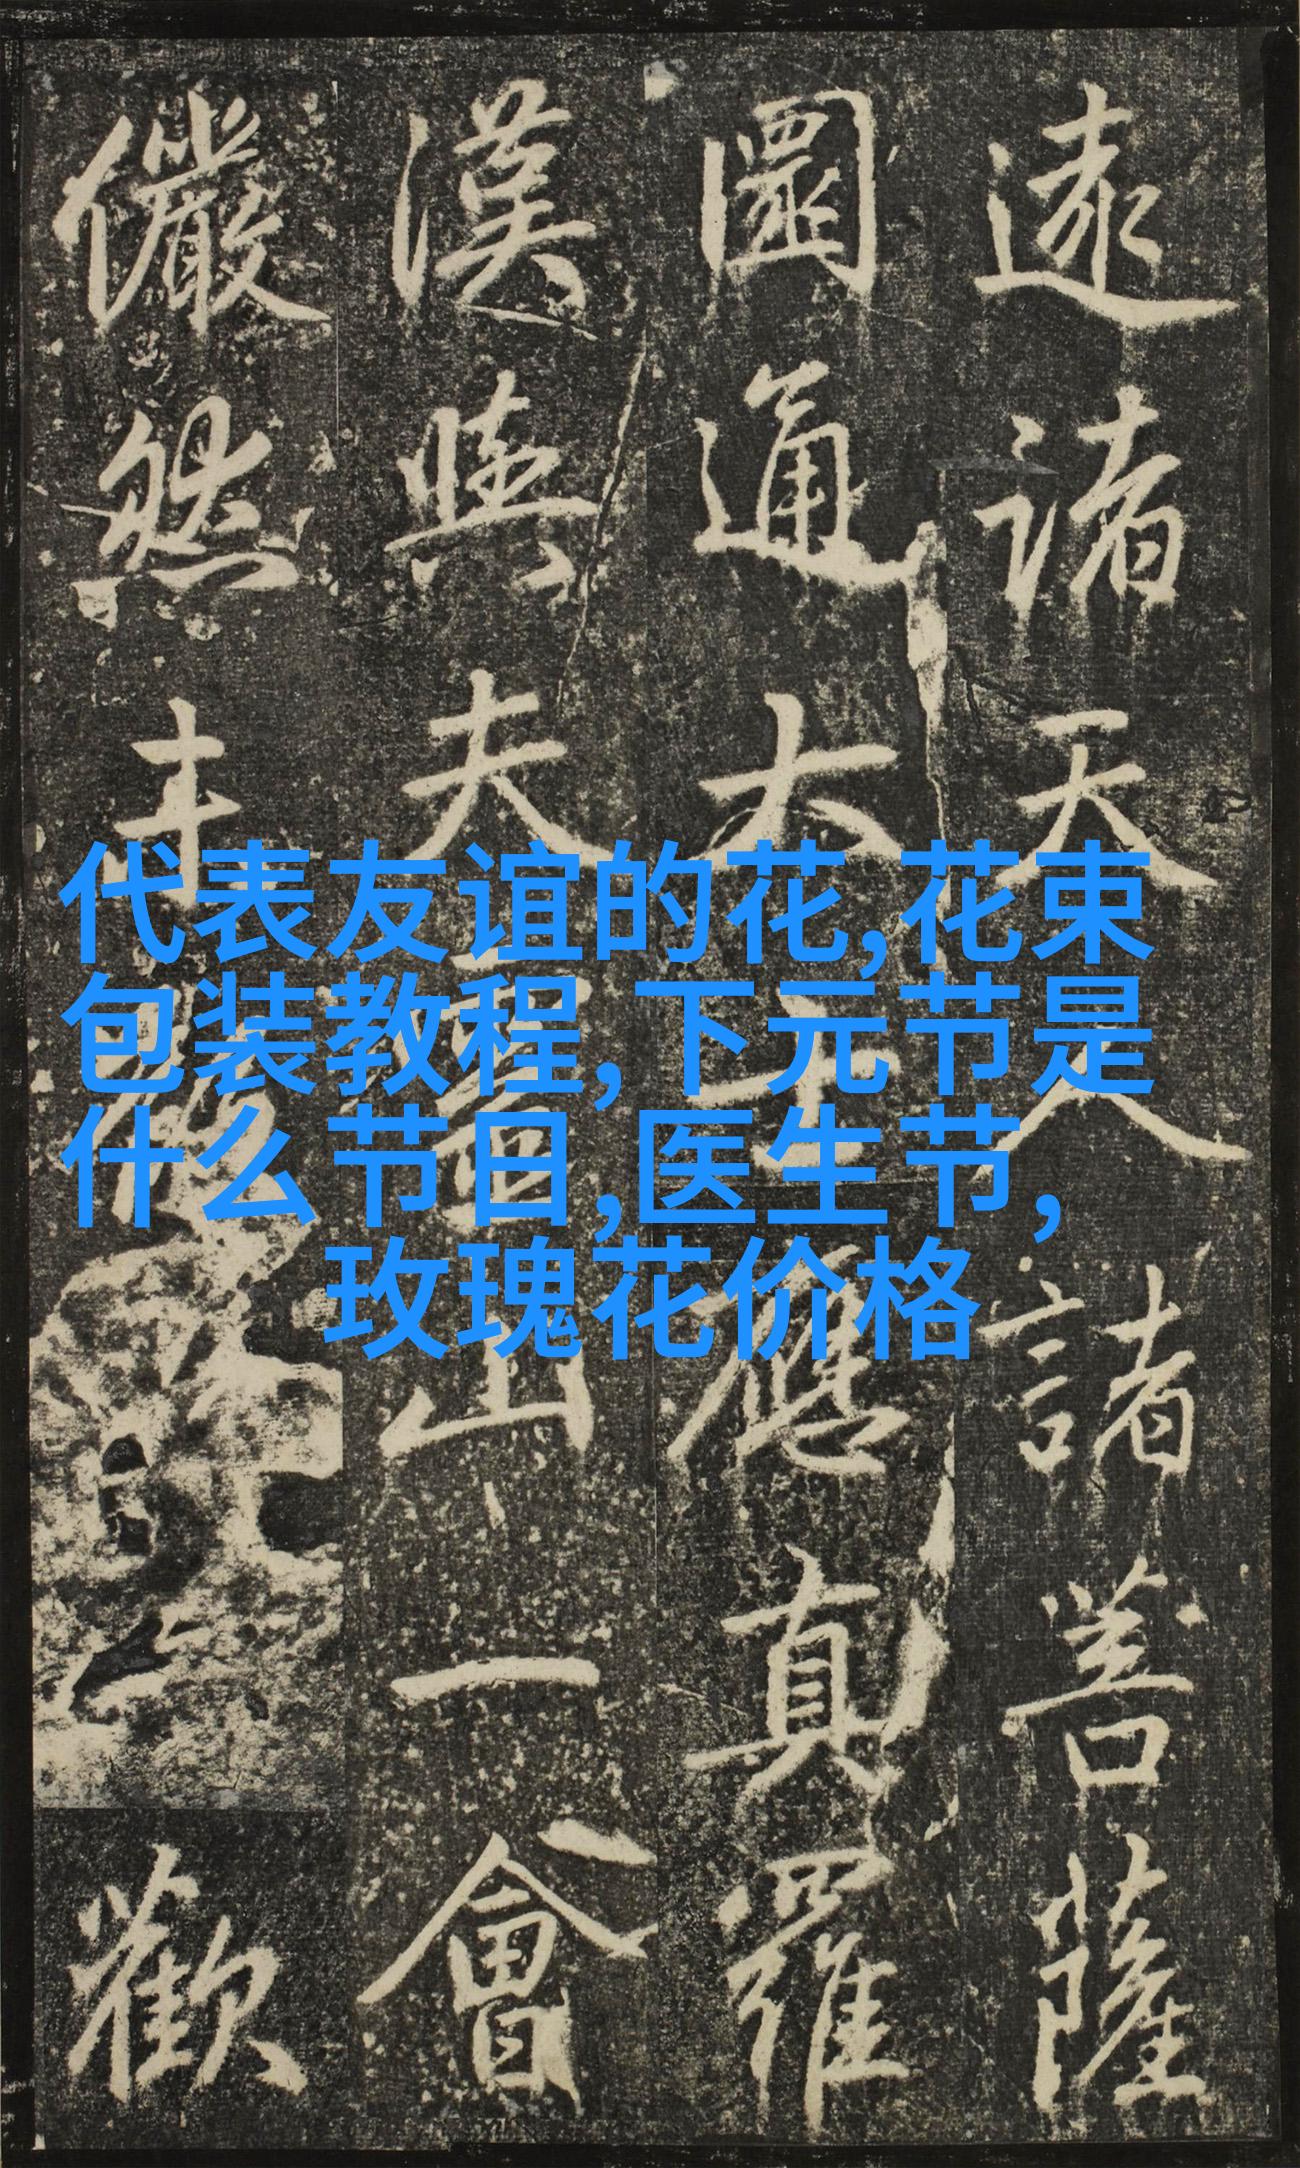 代表友谊的花,花束
包装教程,下元节是
什么节目,医生节,
玫瑰花价格
遠諸天人諸菩薩
圜通大士應真羅
漢與夫山一會
儼然歡